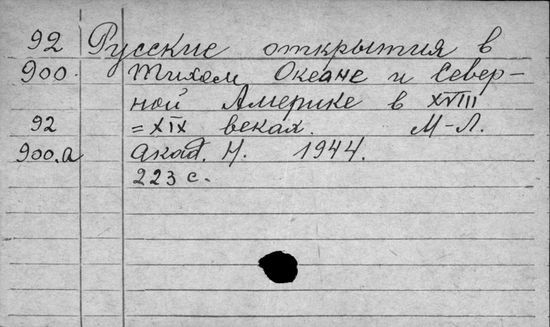 92 Русские открытия в
900. Тихом Океане и Север-
ной Америке в XVIII
92 =XIX веках. М-Л.
900.а Акад. Н. 1944.
223 с.